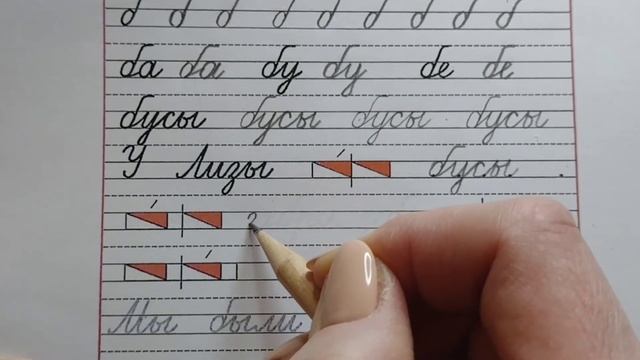 б б б б б б б б
ба ба бу бу бе бе
бусы бусы бусы бусы
У Лизы бусы .
Мы были